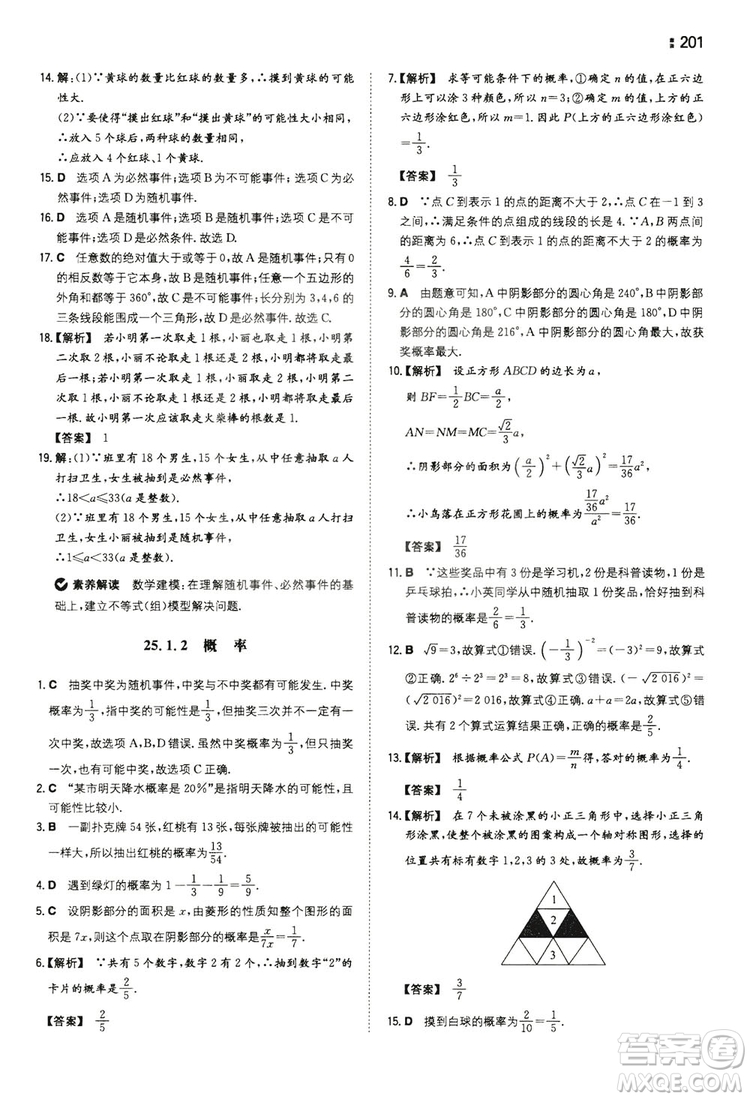 201
14. 解:(1)∵黄球的数量比红球的数量多,∴摸到黄球的可能
性大.
(2)∵要使得“摸出红球”和“摸出黄球”的可能性大小相同,
∴放入5个球后,两种球的数量相同,
∴放入4个红球,1个黄球.
15. D 选项A为必然事件;选项B为不可能事件;选项C为必
然事件;选项D为随机事件.
16. D 选项A是随机事件;选项B是随机事件;选项C是不可
能事件;选项D是必然条件.故选D.
17. C 任意数的绝对值大于或等于0,故A是必然事件;只有0
的相反数等于它本身,故B是随机事件;任何一个五边形的
外角和都等于360°,故C是不可能事件;长分别为3,4,6的
三条线段能围成一个三角形,故D是必然事件.
18. 【解析】 若小明第一次取走1根,小丽也取走1根,小明第
二次取2根,小丽不论取走1根还是两根,小明都将取走最
后一根;若小明第一次取走1根,小丽取走2根,小明第二
次取1根,小丽不论取走1根还是两根,小明都将取走最后
一根.故小明第一次应该取走火柴棒的根数是1.
【答案】 1
19. 解:(1)∵班里有18个男生,15个女生,从中任意抽取a人
打扫卫生,女生被抽到是必然事件,
∴18<a≤33(a是整数).
(2)∵班里有18个男生,15个女生,从中任意抽取a人打扫
卫生,女生小丽被抽到是随机事件,
∴1≤a≤33(a是整数).
素养解读 数学建模:在理解随机事件、必然事件的意义的基
础上,建立不等式(组)模型解决问题.
25.1.2 概 率
1. C 抽奖中奖为随机事件,中奖与不中奖都有可能发生.中奖
概率为1/3,指中奖的可能性是1/3,但抽奖三次并不一定有一
次中奖,故选项A,B,D错误.虽然中奖概率为1/3,但只抽奖
一次,也可能中奖.故选C.
2. C “某市明天降水概率是20%”,是指明天降水的可能性,可
能性比较小.
3. B 一副扑克牌54张,红桃有13张,每张牌被抽到的可能性
一样大,所以抽出红桃的概率为13/54.
4. D 遇到绿灯的概率为1−1/3−1/9=5/9.
5. C 设阴影部分的面积是x,由菱形的性质知整个图形的面积
是7x,则这个点取在阴影部分的概率是x/7x=1/7.
6. 【解析】 ∵共有5个数字,数字2有2个,∴抽到数字“2”的
卡片的概率是2/5.
【答案】 2/5
7. 【解析】 求等可能条件下的概率,①确定n的值,在正六边
形上可以涂3种颜色,所以n=3;②确定m的值,上方的正
六边形涂红色,所以m=1.因此P(上方的正六边形涂红色)
=1/3.
【答案】 1/3
8. D ∵点C到表示1的点的距离不大于2,∴点C在−1到3
之间(含−1和3),∴满足条件的点组成的线段的长是4.
∵其总长度为6,∴点C到表示1的点的距离不大于2的概率为
4/6=2/3.
9. A 由题意可知,A中阴影部分的圆心角是240°,B中阴影部
分的圆心角是180°,C中阴影部分的圆心角是180°,D中阴
影部分的圆心角是216°,∴A中阴影部分的面积最大,故获
奖概率最大.
10. 【解析】 设正方形ABCD的边长为a,
则BF=1/2BC=a/2,
AN=NM=MC=√2/3a,
∴阴影部分的面积为(a/2)²+(√2/3a)²=17/36a².
∴小鸟落在正方形花圃上的概率为(17/36a²)/a²=17/36.
【答案】 17/36
11. B ∵这些奖品中有3份是学习机,2份是科普读物,1份是
乒乓球拍,∴小英同学从中随机抽取一份奖品,恰好抽到科
普读物的概率是2/6=1/3.
12. B √9=3,故算式①错误.(−1/3)⁻²=(−3)²=9,故算式
②正确.2⁶÷2³=2³=8,故算式③错误.(−√2 016)²=
(√2 016)²=2 016,故算式④正确.a+a=2a,故算式⑤错
误.故共有2个算式运算结果正确,正确的概率是2/5.
13. 【解析】 根据概率公式P(A)=m/n得,答对的概率是1/4.
【答案】 1/4
14. 【解析】 在7个未被涂黑的小正三角形中,选择小正三角
形涂黑,使整个被涂黑的图案构成一个轴对称图形,选择的
位置共有标有数字1,2,3的3处,故概率为3/7.
1
2
3
【答案】 3/7
15. D 摸到白球的概率为2/10=1/5.
答案圈
MXQE.COM